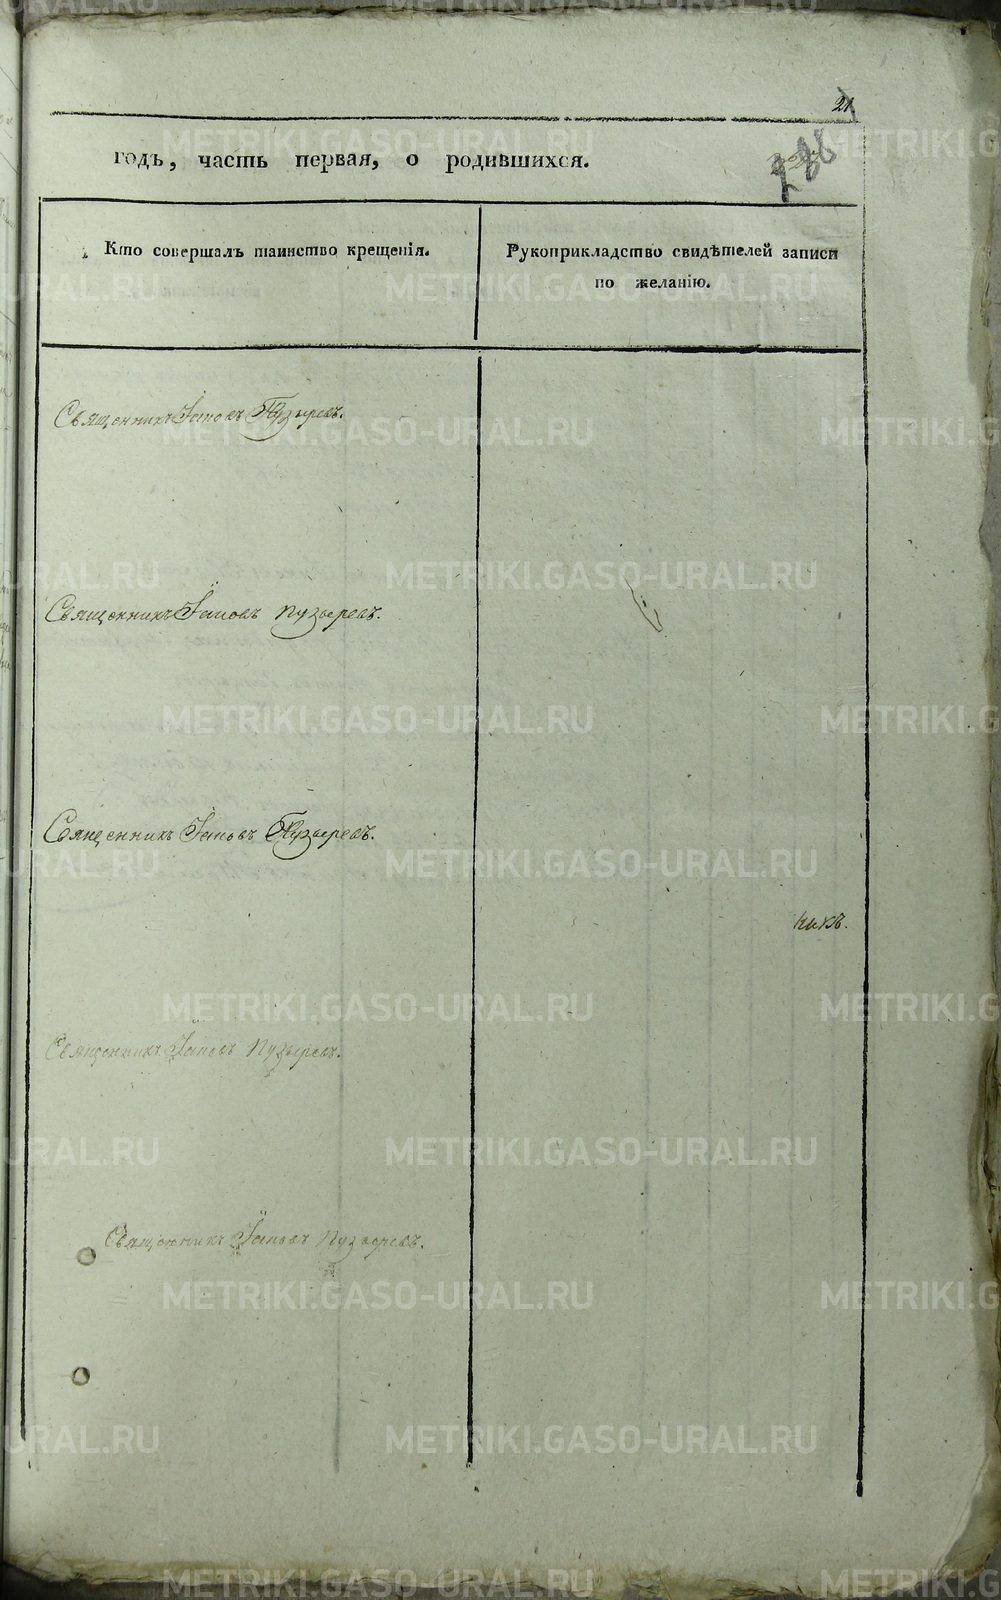 21
годъ, часть первая, о родившихся.
286
Кто совершалъ таинство крещенія.
Рукоприкладство свидѣтелей записи
по желанію.
Священникъ Іаковъ Пузыревъ.
Священникъ Іаковъ Пузыревъ.
Священникъ Іаковъ Пузыревъ.
никъ.
Священникъ Іаковъ Пузыревъ.
Священникъ Іаковъ Пузыревъ.
METRIKI.GASO-URAL.RU